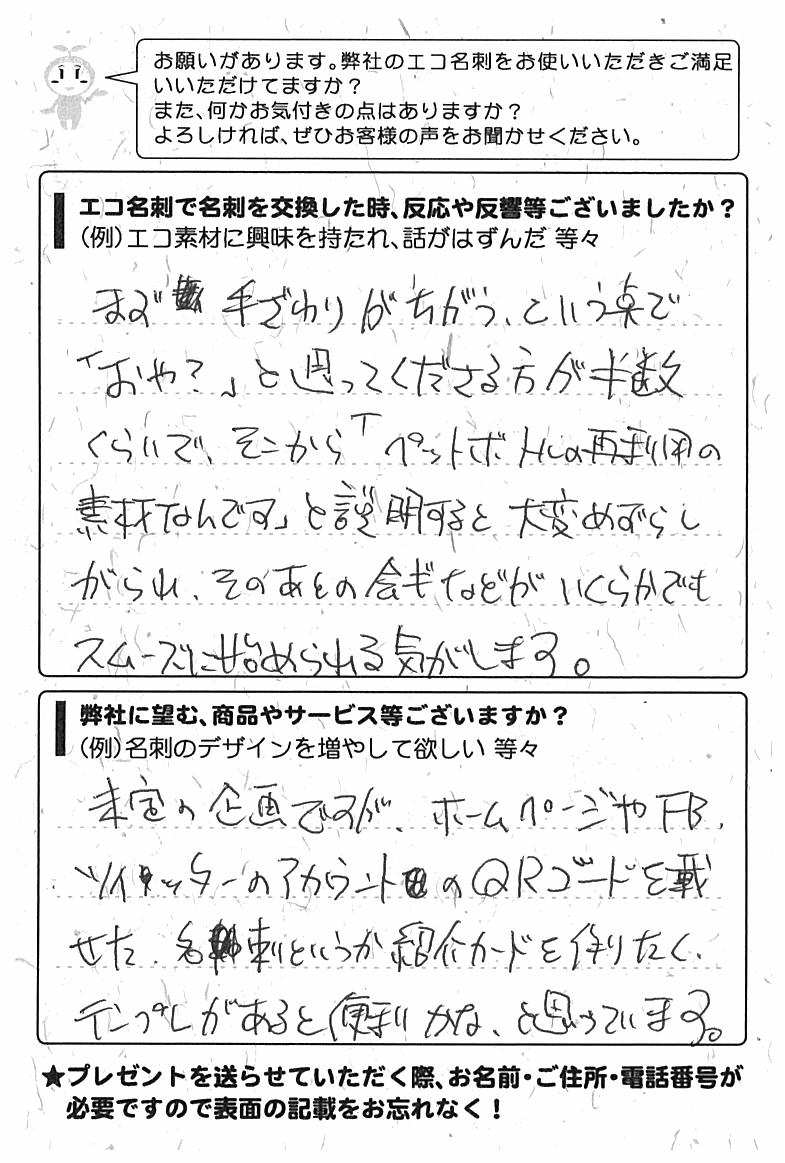 お願いがあります。弊社のエコ名刺をお使いいただきご満足
いいただけてますか?
また、何かお気付きの点はありますか?
よろしければ、ぜひお客様の声をお聞かせください。
エコ名刺で名刺を交換した時、反応や反響等ございましたか?
(例)エコ素材に興味を持たれ、話がはずんだ 等々
まず 手ざわりがちがう、という点で
「おや?」と思ってくださる方が半数
くらいで、そこから「ペットボトルの再利用の
素材なんです」と説明すると大変めずらし
がられ、そのあとの会話などがいくらかでも
スムーズに始められる気がします。
弊社に望む、商品やサービス等ございますか?
(例)名刺のデザインを増やして欲しい 等々
未定の企画ですが、ホームページやFB、
ツイッターのアカウントのQRコードを載
せた、名刺というか紹介カードを作りたく、
テンプレがあると便利かな、と思っています。
★プレゼントを送らせていただく際、お名前・ご住所・電話番号が
必要ですので表面の記載をお忘れなく!